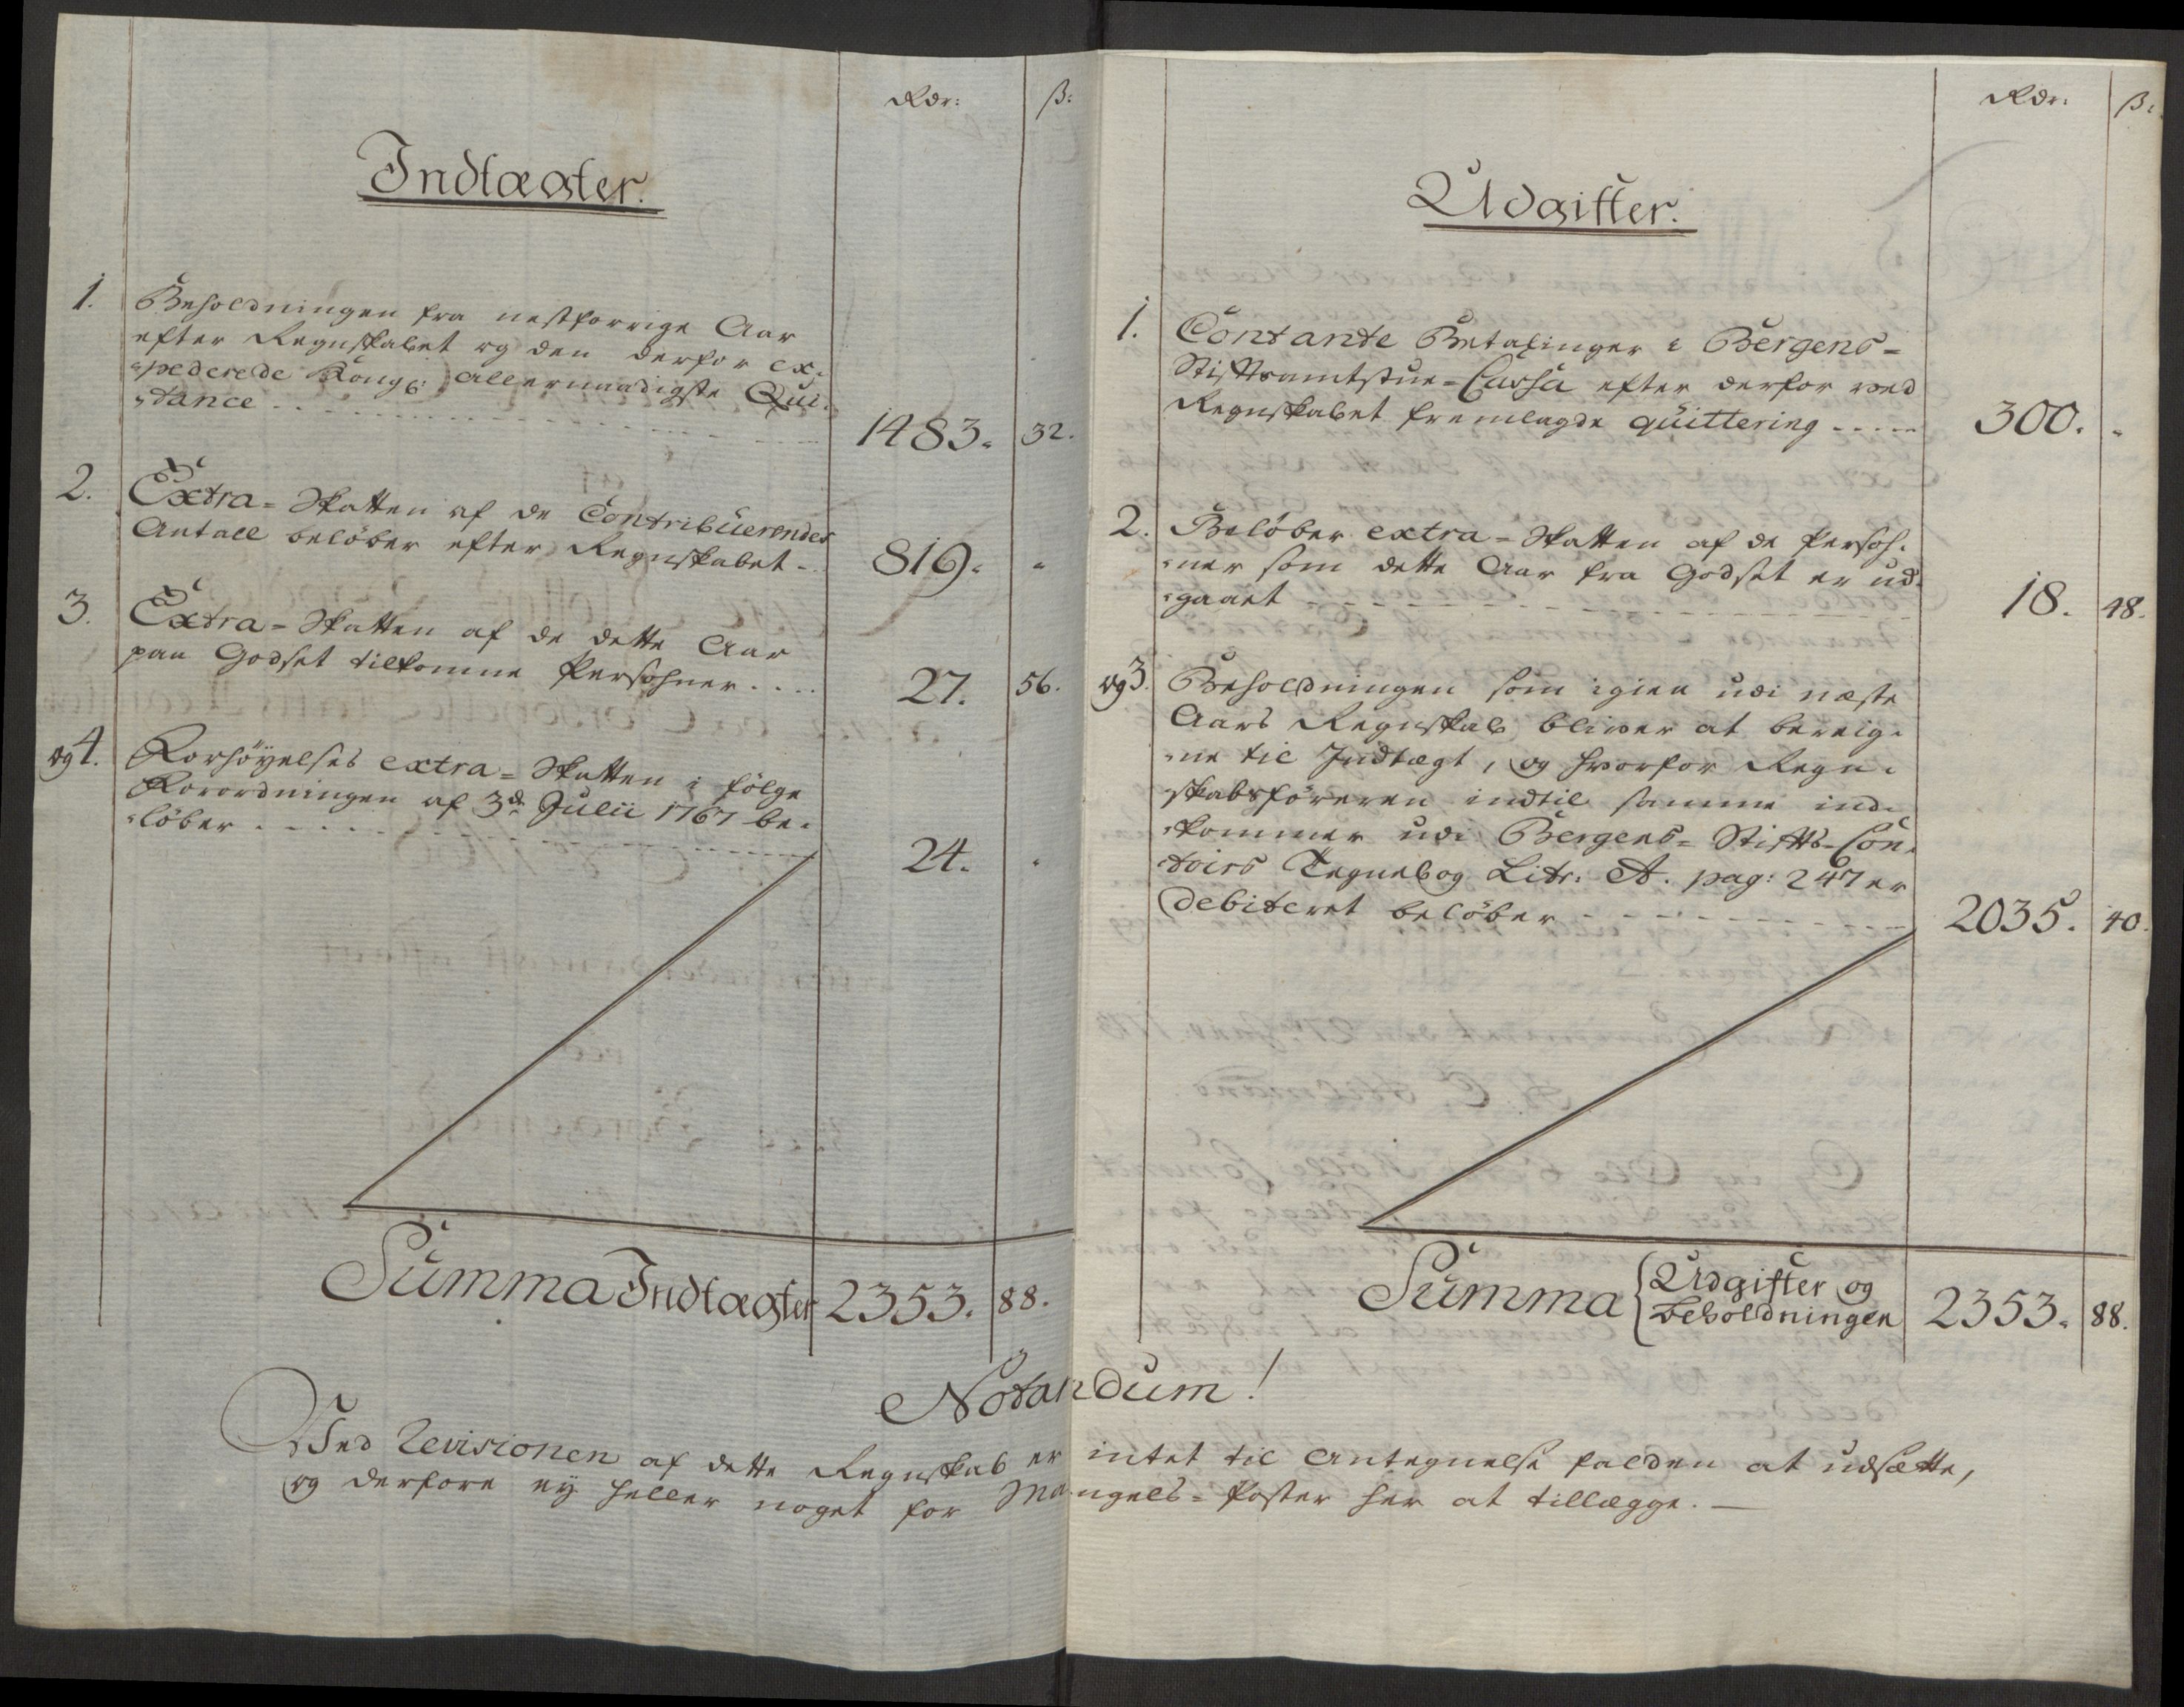 Rdr: ß:
Indtægter.
1. Beholdningen fra nestforrige Aar
efter Regnskabet og den derfor ex-
-pederede Kongl: allernaadigste Qui-
-tance 1483. 32.
2. Extra-Skatten af de Contribuerendes
Antall beløber efter Regnskabet 819. -
3. Extra-Skatten af de dette Aar
paa Godset tilkomne Persohner 27. 56.
og 4. Forhøyelses extra-Skatten i følge
Forordningen af 3de Julii 1767 be-
-løber 24. -
Summa Indtægter 2353. 88.
Rdr: ß:
Udgifter.
1. Contante Betalinger i Bergens-
Stiftamtstue-Cassa efter derfor ved
Regnskabet fremlagde quittering 300. -
2. Beløber extra-Skatten af de Persoh-
-ner som dette Aar fra Godset er ud-
-gaaet 18. 48.
og 3. Beholdningen som igien udi næste
Aars Regnskab bliver at bereig-
-ne til Indtægt, og hvorfor Regn-
-skabsføreren indtil samme ind-
-kommer udi Bergens-Stifts-Con-
-toirs Tegnebog Litr: A. pag: 247 er
debiteret beløber 2035. 40.
Summa Udgifter og
Beholdningen 2353. 88.
Notandum!
Ved Revisionen af dette Regnskab er intet til Antegnelse falden at udsætte,
og derfore ey heller noget for Mangels-Poster her at tillægge.